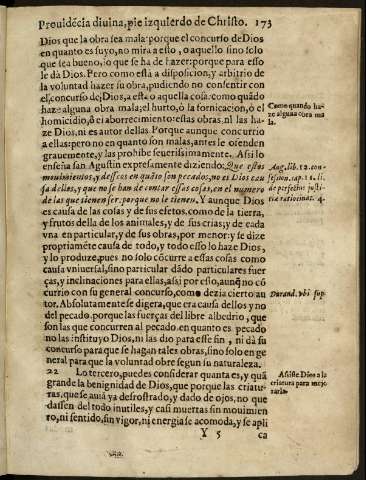 Prouidẽcia diuina, pie izquierdo de Christo. 173
Dios que la obra sea mala: porque el concurso de Dios
en quanto es suyo, no mira a esto, o aquello sino solo
que sea bueno, lo que se ha de hazer: porque para esso
le dà Dios. Pero como està a disposicion, y arbitrio de
la voluntad hazer su obra, pudiendo no consentir con
el concurso de Dios, a esta o aquella cosa: como quãdo
haze alguna obra mala; el hurto, ò la fornicacion, ò el
homicidio, ò el aborrecimiento: estas obras, ni las ha-
ze Dios, ni es autor dellas. Porque aunque concurrio
a ellas: pero no en quanto son malas, antes le ofenden
grauemente, y las prohibe seuerissimamente. Assi lo
enseña san Agustin expresamente diziendo: Que estos
mouimientos, y desseos en quãto son pecados, no es Dios cau
sa dellas, y que no se han de contar essas cosas, en el numero
de las que tienen ser, porque no le tienen. Y aunque Dios
es causa de las cosas, y de sus efetos, como de la tierra,
y frutos della de los animales, y de sus crias; y de cada
vna en particular, y de sus obras, por menor: y se dize
propriamẽte causa de todo, y todo esso lo haze Dios,
y lo produze, pues no solo cõcurre a essas cosas como
causa vniuersal, sino particular dãdo particulares fuer
ças, y inclinaciones para ellas, assi por esso, aunq̃ no cõ
currio con su general concurso, como dezia cierto au
tor. Absolutamente se digera, que era causa dellos y no
del pecado, porque las fuerças del libre albedrio, que
son las que concurren al pecado, en quanto es pecado
no las instituyo Dios, ni las dio para esse fin, ni dà su
concurso para que se hagan tales obras, sino solo en ge
neral para que la voluntad obre segun su naturaleza.
22 Lo tercero, puedes considerar quanta es, y quã
grande la benignidad de Dios, que porque las criatu-
ras, que se auiã ya desfrostrado, y dado de ojos, no que
dassen del todo inutiles, y casi muertas sin mouimien
to, ni sentido, sin vigor, ni energia se acomoda, y se apli
Y 5 ca
Como quando ha-
ze alguna obra ma
la.
Aug. lib. 12. con-
fession. cap. 11. li.
de perfectio. justi-
tiæ ratiocinat. 4.
Durand. vbi sup.
Asiste Dios a la
criatura para mejo
rarla.